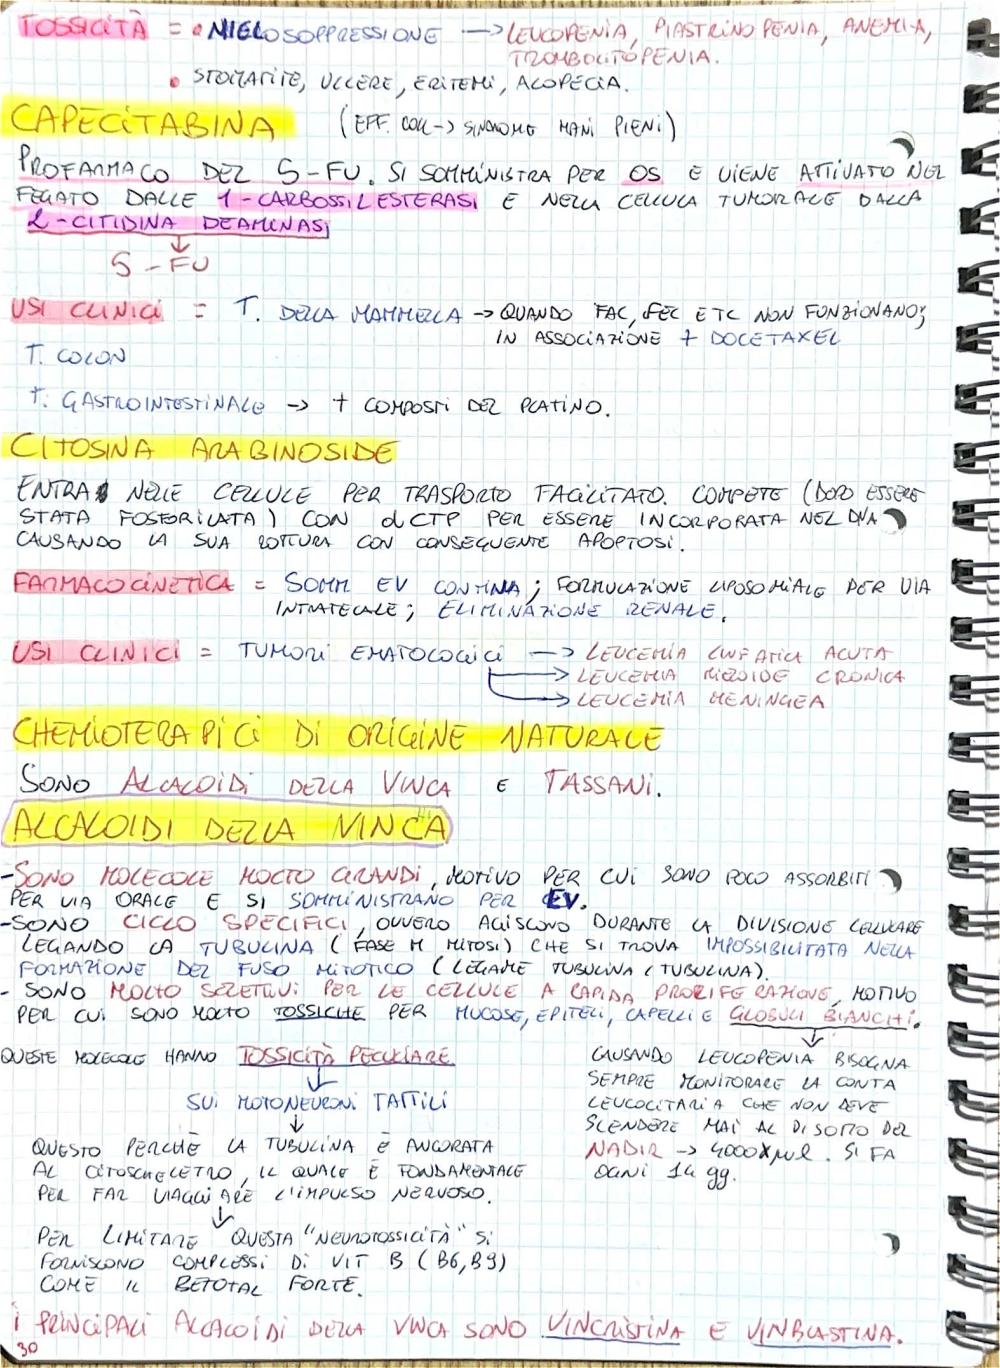 TOSSICITÀ = • MIELOSOPPRESSIONE → LEUCOPENIA, PIASTRINOPENIA, ANEMIA,
TROMBOCITOPENIA.
• STOMATITE, ULCERE, ERITEMI, ALOPECIA.
CAPECITABINA (EFF. COLL → SINDROME MANI PIENI)
PROFARMACO DEL 5-FU. SI SOMMINISTRA PER OS E VIENE ATTIVATO NEL
FEGATO DALLE 1-CARBOSSILESTERASI E NELLA CELLULA TUMORALE DALLA
2-CITIDINA DEAMINASI
↓
5-FU
USI CLINICI = T. DELLA MAMMELLA → QUANDO FAC, FEC ETC NON FUNZIONANO;
IN ASSOCIAZIONE + DOCETAXEL
T. COLON
T. GASTROINTESTINALE → + COMPOSTI DEL PLATINO.
CITOSINA ARABINOSIDE
ENTRA NELLE CELLULE PER TRASPORTO FACILITATO. COMPETE (DOPO ESSERE
STATA FOSFORILATA) CON dCTP PER ESSERE INCORPORATA NEL DNA
CAUSANDO LA SUA ROTTURA CON CONSEGUENTE APOPTOSI.
FARMACOCINETICA = SOMM EV CONTINUA; FORMULAZIONE LIPOSOMIALE PER VIA
INTRATECALE; ELIMINAZIONE RENALE.
USI CLINICI = TUMORI EMATOLOGICI → LEUCEMIA LINFATICA ACUTA
→ LEUCEMIA MIELOIDE CRONICA
→ LEUCEMIA MENINGEA
CHEMIOTERAPICI DI ORIGINE NATURALE
SONO ALCALOIDI DELLA VINCA E TASSANI.
ALCALOIDI DELLA VINCA
-SONO MOLECOLE MOLTO GRANDI, MOTIVO PER CUI SONO POCO ASSORBITI
PER VIA ORALE E SI SOMMINISTRANO PER EV.
-SONO CICLO SPECIFICI, OVVERO AGISCONO DURANTE LA DIVISIONE CELLULARE
LEGANDO LA TUBULINA (FASE M MITOSI) CHE SI TROVA IMPOSSIBILITATA NELLA
FORMAZIONE DEL FUSO MITOTICO (LEGAME TUBULINA/TUBULINA).
- SONO MOLTO SELETTIVI PER LE CELLULE A RAPIDA PROLIFERAZIONE, MOTIVO
PER CUI SONO MOLTO TOSSICHE PER MUCOSE, EPITELI, CAPELLI E GLOBULI BIANCHI.
QUESTE MOLECOLE HANNO TOSSICITÀ PECULIARE
↓
SUI MOTONEURONI TATTILI
↓
QUESTO PERCHÈ LA TUBULINA È ANCORATA
AL CITOSCHELETRO, IL QUALE È FONDAMENTALE
PER FAR VIAGGIARE L'IMPULSO NERVOSO.
↓
PER LIMITARE QUESTA "NEUROTOSSICITÀ" SI
FORNISCONO COMPLESSI DI VIT B (B6, B9)
COME IL BETOTAL FORTE.
↓
CAUSANDO LEUCOPENIA BISOGNA
SEMPRE MONITORARE LA CONTA
LEUCOCITARIA CHE NON DEVE
SCENDERE MAI AL DI SOTTO DEL
NADIR → 4000xμl. SI FA
OGNI 14 gg.
I PRINCIPALI ALCALOIDI DELLA VINCA SONO VINCRISTINA E VINBLASTINA.
30